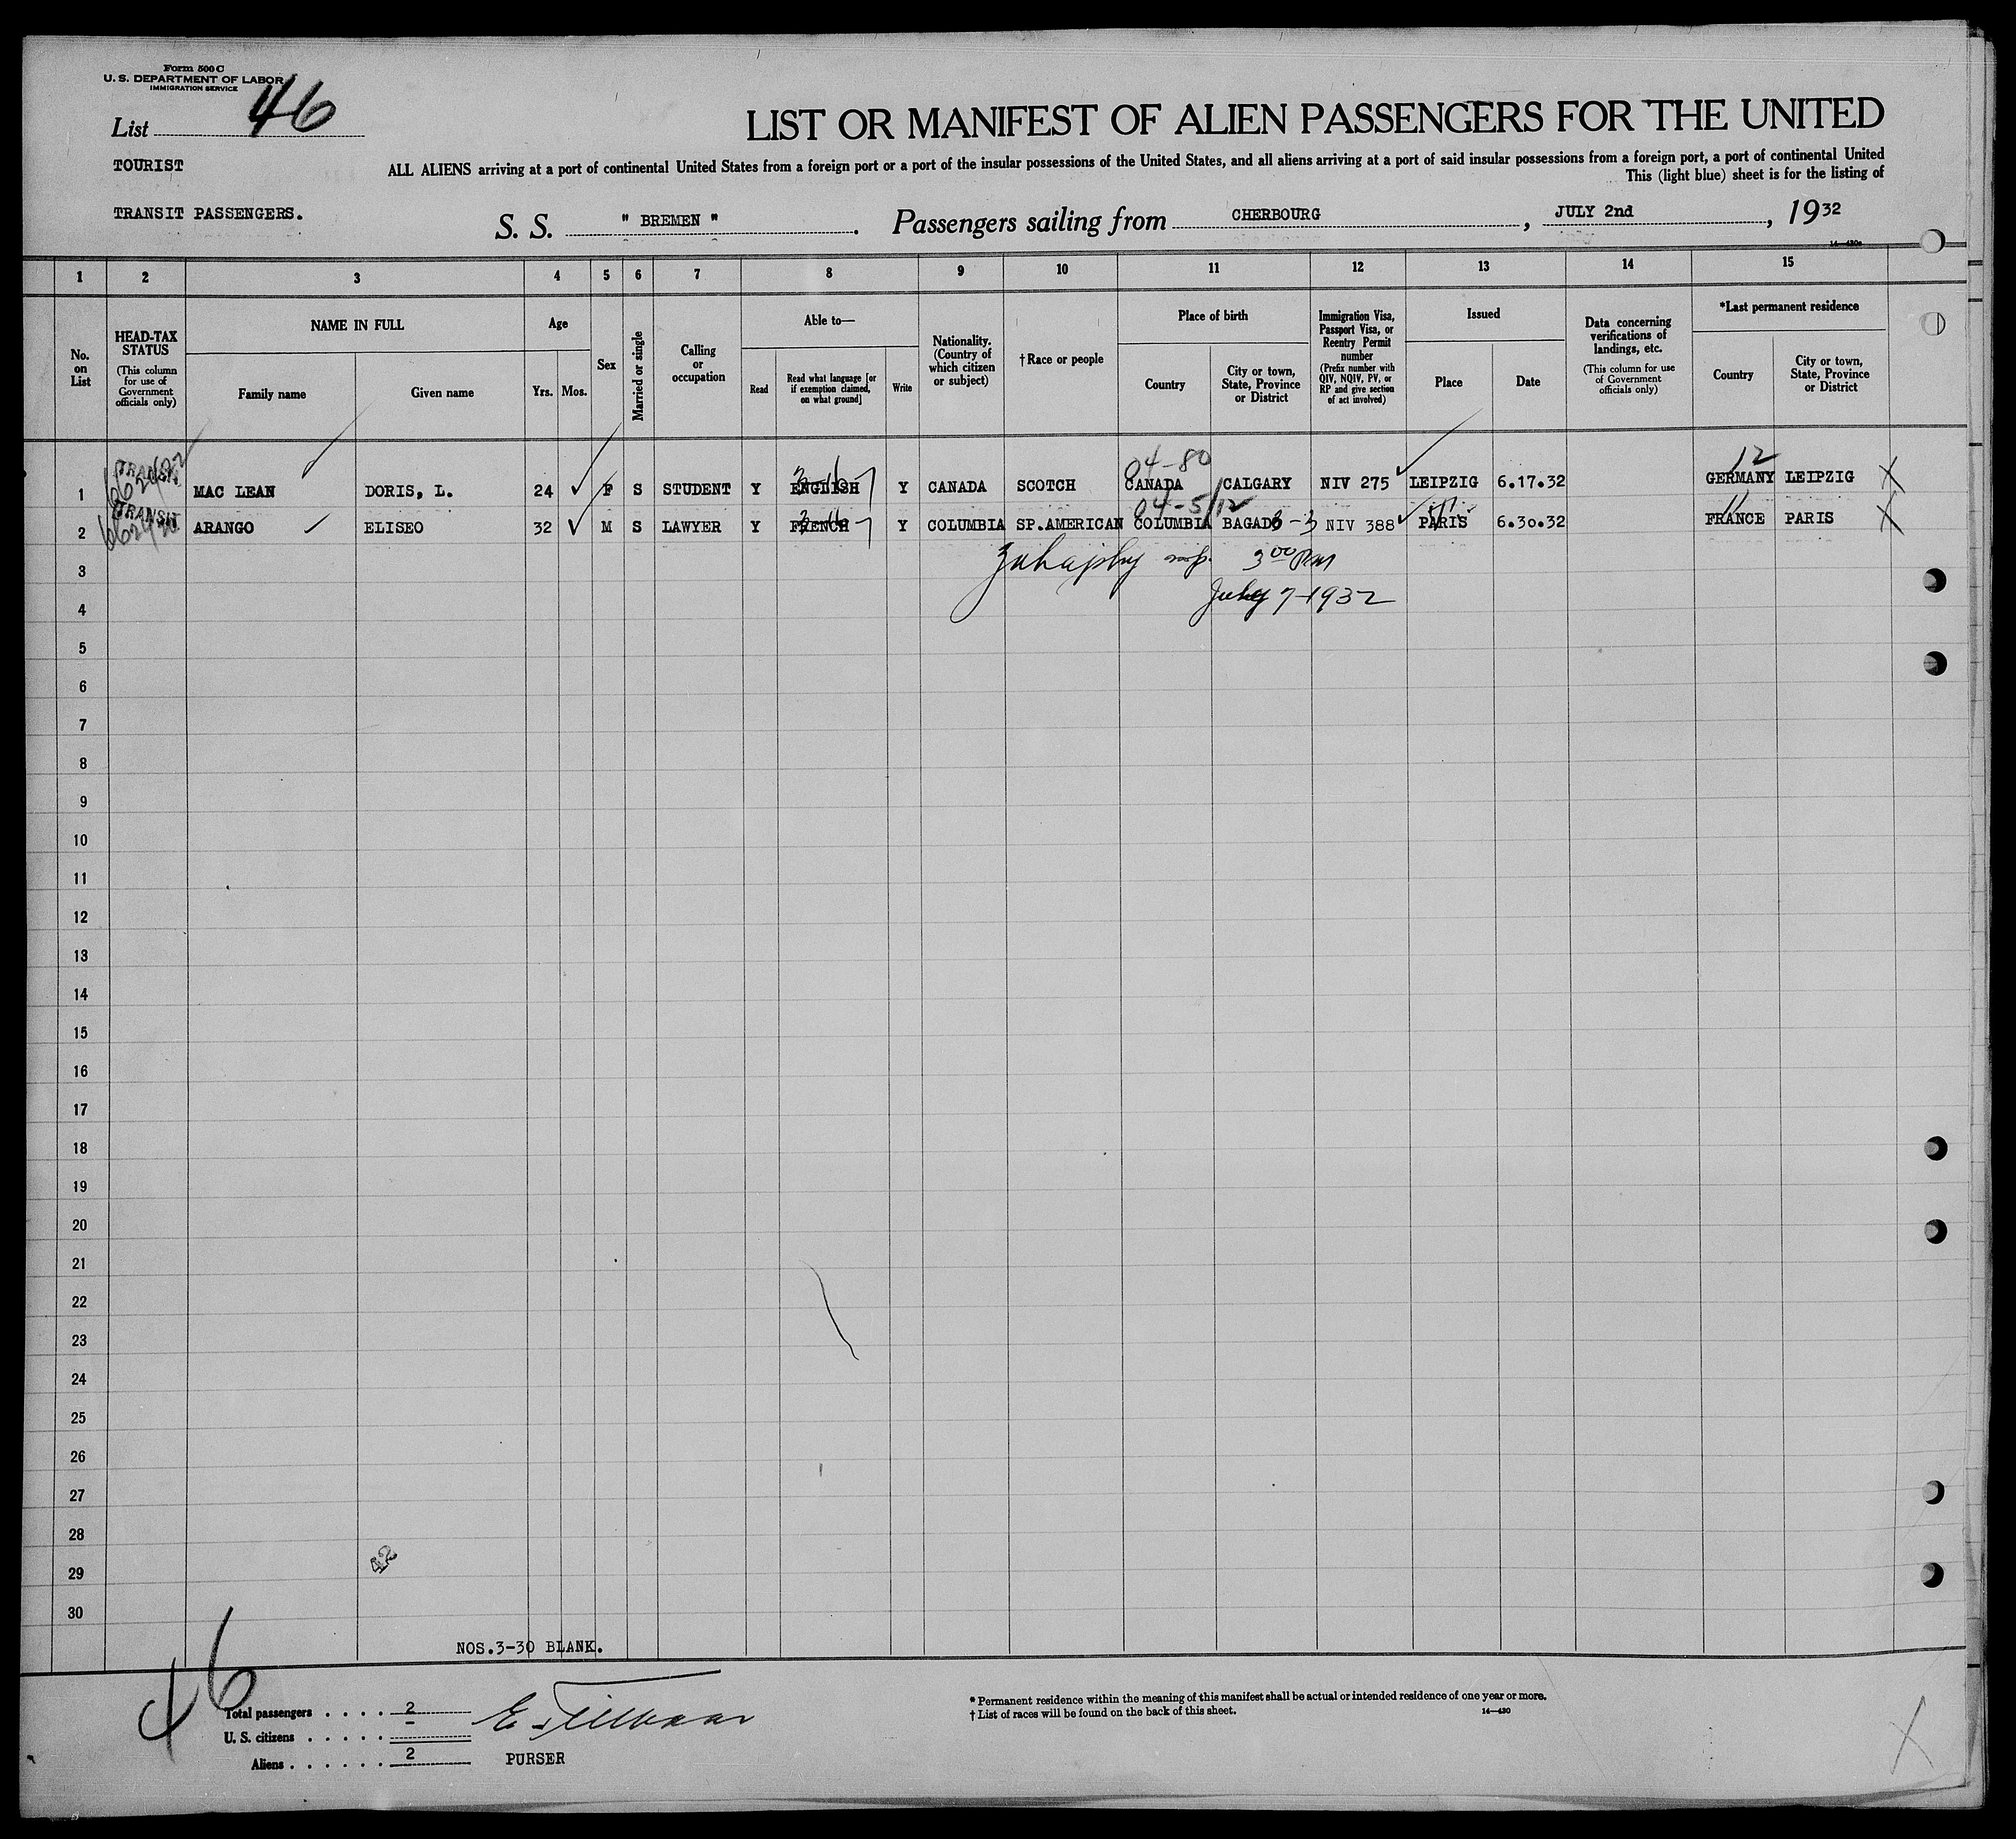 Form 500 C
U. S. DEPARTMENT OF LABOR
IMMIGRATION SERVICE
List 46
LIST OR MANIFEST OF ALIEN PASSENGERS FOR THE UNITED
TOURIST
ALL ALIENS arriving at a port of continental United States from a foreign port or a port of the insular possessions of the United States, and all aliens arriving at a port of said insular possessions from a foreign port, a port of continental United
This (light blue) sheet is for the listing of
TRANSIT PASSENGERS.
S. S. " BREMEN ". Passengers sailing from CHERBOURG, JULY 2nd, 1932
14—430a
1 2 3 4 5 6 7 8 9 10 11 12 13 14 15
No. on List
HEAD-TAX STATUS
(This column for use of Government officials only)
NAME IN FULL
Family name
Given name
Age
Yrs. Mos.
Sex
Married or single
Calling or occupation
Able to—
Read
Read what language [or if exemption claimed, on what ground]
Write
Nationality. (Country of which citizen or subject)
†Race or people
Place of birth
Country
City or town, State, Province or District
Immigration Visa, Passport Visa, or Reentry Permit number
(Prefix number with QIV, NQIV, PV, or RP and give section of act involved)
Issued
Place
Date
Data concerning verifications of landings, etc.
(This column for use of Government officials only)
*Last permanent residence
Country
City or town, State, Province or District
04-80
12
TRANSIT
1 MAC LEAN DORIS, L. 24 F S STUDENT Y ENGLISH Y CANADA SCOTCH CANADA CALGARY NIV 275 LEIPZIG 6.17.32 GERMANY LEIPZIG
04-5/12
11
TRANSIT
2 ARANGO ELISEO 32 M S LAWYER Y FRENCH Y COLUMBIA SP.AMERICAN COLUMBIA BAGADO 3-3 NIV 388 PARIS 6.30.32 FRANCE PARIS
3
insp. 3 00 PM
4
July 7-1932
5
6
7
8
9
10
11
12
13
14
15
16
17
18
19
20
21
22
23
24
25
26
27
28
29
42
30
NOS.3-30 BLANK.
46
Total passengers . . . . 2
U. S. citizens . . . . . -
Aliens . . . . . . 2
PURSER
* Permanent residence within the meaning of this manifest shall be actual or intended residence of one year or more.
† List of races will be found on the back of this sheet.
14—430